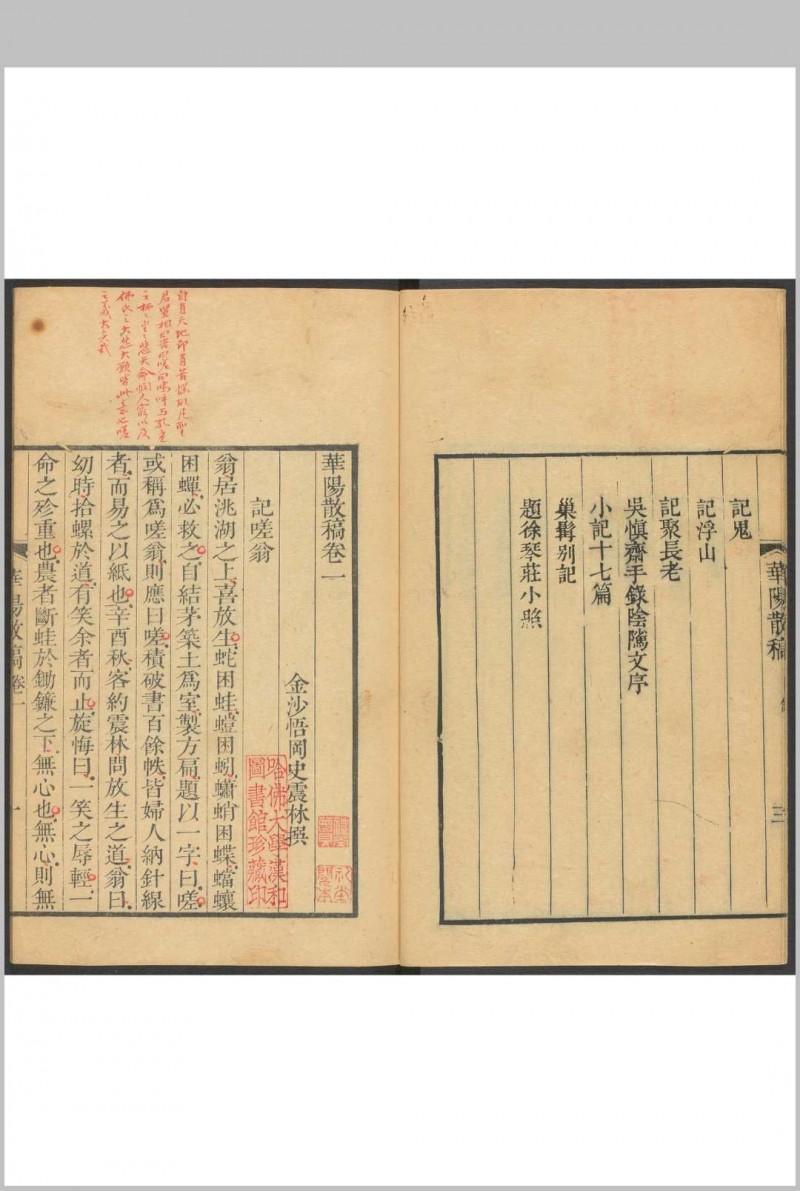 記鬼
記浮山
記聚長老
吳慎齋手錄陰隲文序
小記十七篇
巢鞾別記
題徐琴莊小照
華陽散稿
三
華陽散稿卷一
金沙悟岡史震林撰
哈佛大學漢和
圖書館珍藏印
記嗟翁
翁居洮湖之上喜放生蛇困蛙螘困蚓蠨蛸困蝶蟷蠰
困蟬必救之自結茅築土爲室製方扁題以一字曰嗟
或稱爲嗟翁則應曰嗟積破書百餘帙皆婦人納針線
者而易之以紙也辛酉秋客約震林問放生之道翁曰
幼時拾螺於道有笑余者而止旋悔曰一笑之辱輕一
命之殄重也農者斷蛙於鋤鐮之下無心也無心則無
華陽散稿卷一
一